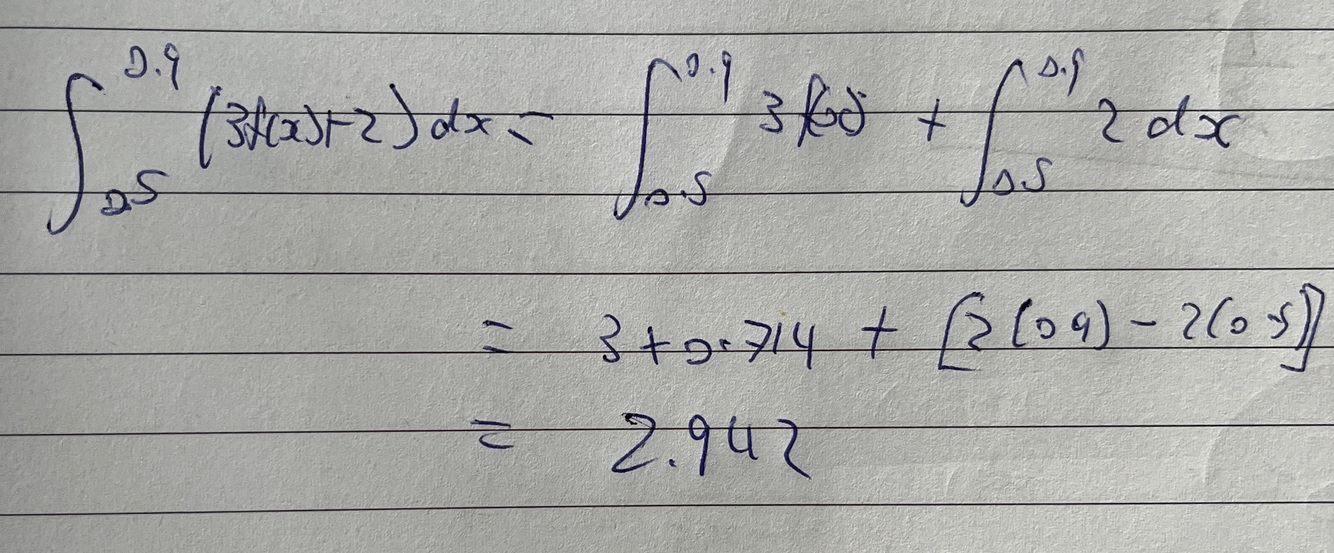 ∫_{0.5}^{0.9} (3f(x)+2) dx = ∫_{0.5}^{0.9} 3f(x) + ∫_{0.5}^{0.9} 2 dx
= 3+0.714 + [2(0.9) - 2(0.5)]
= 2.942